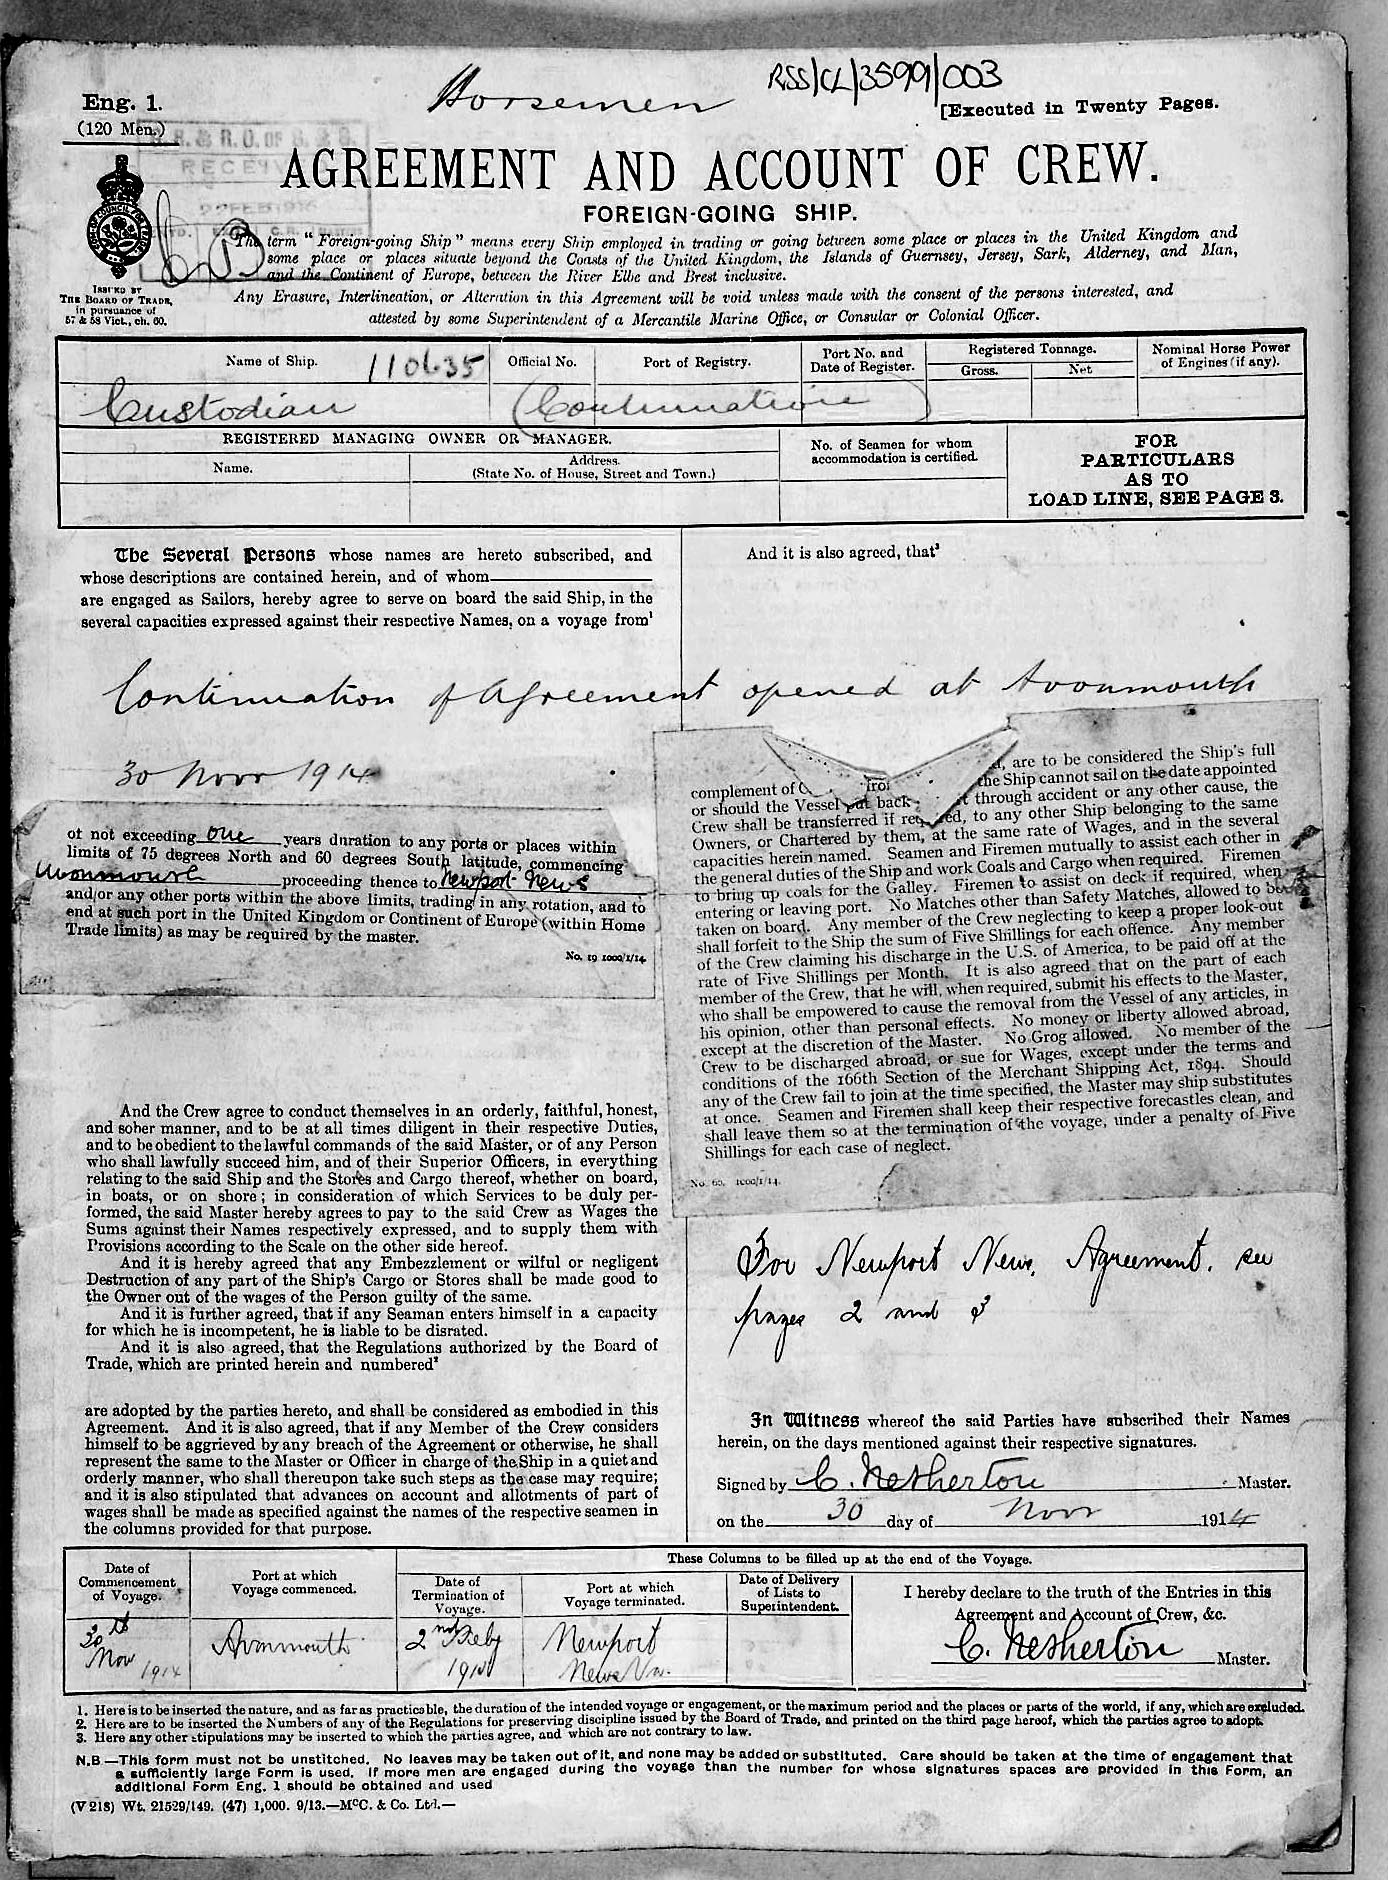 Horsemen
RSS/CL/3599/003
Eng. 1.
(120 Men.)
[Executed in Twenty Pages.
RECEIV
AGREEMENT AND ACCOUNT OF CREW.
FOREIGN-GOING SHIP.
The term "Foreign-going Ship" means every Ship employed in trading or going between some place or places in the United Kingdom and
some place or places situate beyond the Coasts of the United Kingdom, the Islands of Guernsey, Jersey, Sark, Alderney, and Man,
and the Continent of Europe, between the River Elbe and Brest inclusive.
Any Erasure, Interlineation, or Alteration in this Agreement will be void unless made with the consent of the persons interested, and
attested by some Superintendent of a Mercantile Marine Office, or Consular or Colonial Officer.
ISSUED BY
THE BOARD OF TRADE,
in pursuance of
57 & 58 Vict., ch. 60.
Name of Ship. 110635
Official No.
Port of Registry.
Port No. and
Date of Register.
Registered Tonnage.
Gross.
Net
Nominal Horse Power
of Engines (if any).
Custodian
(Continuation)
REGISTERED MANAGING OWNER OR MANAGER.
Name.
Address.
(State No. of House, Street and Town.)
No. of Seamen for whom
accommodation is certified.
FOR
PARTICULARS
AS TO
LOAD LINE, SEE PAGE 3.
The Several Persons whose names are hereto subscribed, and
whose descriptions are contained herein, and of whom
are engaged as Sailors, hereby agree to serve on board the said Ship, in the
several capacities expressed against their respective Names, on a voyage from¹
And it is also agreed, that³
Continuation of Agreement opened at Avonmouth
30 Novr 1914
of not exceeding one years duration to any ports or places within
limits of 75 degrees North and 60 degrees South latitude, commencing
Avonmouth proceeding thence to Newport News
and/or any other ports within the above limits, trading in any rotation, and to
end at such port in the United Kingdom or Continent of Europe (within Home
Trade limits) as may be required by the master.
No. 19 1000/1/14.
are to be considered the Ship's full
complement of the Ship cannot sail on the date appointed
or should the Vessel put back through accident or any other cause, the
Crew shall be transferred if required, to any other Ship belonging to the same
Owners, or Chartered by them, at the same rate of Wages, and in the several
capacities herein named. Seamen and Firemen mutually to assist each other in
the general duties of the Ship and work Coals and Cargo when required. Firemen
to bring up coals for the Galley. Firemen to assist on deck if required, when
entering or leaving port. No Matches other than Safety Matches, allowed to be
taken on board. Any member of the Crew neglecting to keep a proper look-out
shall forfeit to the Ship the sum of Five Shillings for each offence. Any member
of the Crew claiming his discharge in the U.S. of America, to be paid off at the
rate of Five Shillings per Month. It is also agreed that on the part of each
member of the Crew, that he will, when required, submit his effects to the Master,
who shall be empowered to cause the removal from the Vessel of any articles, in
his opinion, other than personal effects. No money or liberty allowed abroad,
except at the discretion of the Master. No Grog allowed. No member of the
Crew to be discharged abroad, or sue for Wages, except under the terms and
conditions of the 166th Section of the Merchant Shipping Act, 1894. Should
any of the Crew fail to join at the time specified, the Master may ship substitutes
at once. Seamen and Firemen shall keep their respective forecastles clean, and
shall leave them so at the termination of the voyage, under a penalty of Five
Shillings for each case of neglect.
No. 60. 1000/1/14.
And the Crew agree to conduct themselves in an orderly, faithful, honest,
and sober manner, and to be at all times diligent in their respective Duties,
and to be obedient to the lawful commands of the said Master, or of any Person
who shall lawfully succeed him, and of their Superior Officers, in everything
relating to the said Ship and the Stores and Cargo thereof, whether on board,
in boats, or on shore; in consideration of which Services to be duly per-
formed, the said Master hereby agrees to pay to the said Crew as Wages the
Sums against their Names respectively expressed, and to supply them with
Provisions according to the Scale on the other side hereof.
And it is hereby agreed that any Embezzlement or wilful or negligent
Destruction of any part of the Ship's Cargo or Stores shall be made good to
the Owner out of the wages of the Person guilty of the same.
And it is further agreed, that if any Seaman enters himself in a capacity
for which he is incompetent, he is liable to be disrated.
And it is also agreed, that the Regulations authorized by the Board of
Trade, which are printed herein and numbered²
are adopted by the parties hereto, and shall be considered as embodied in this
Agreement. And it is also agreed, that if any Member of the Crew considers
himself to be aggrieved by any breach of the Agreement or otherwise, he shall
represent the same to the Master or Officer in charge of the Ship in a quiet and
orderly manner, who shall thereupon take such steps as the case may require;
and it is also stipulated that advances on account and allotments of part of
wages shall be made as specified against the names of the respective seamen in
the columns provided for that purpose.
For Newport News, Agreement, see
pages 2 and 3
In Witness whereof the said Parties have subscribed their Names
herein, on the days mentioned against their respective signatures.
Signed by C. Netherton Master.
on the 30 day of Novr 1914
Date of
Commencement
of Voyage.
Port at which
Voyage commenced.
These Columns to be filled up at the end of the Voyage.
Date of
Termination of
Voyage.
Port at which
Voyage terminated.
Date of Delivery
of Lists to
Superintendent.
I hereby declare to the truth of the Entries in this
Agreement and Account of Crew, &c.
C. Netherton Master.
30th
Nov 1914
Avonmouth
2nd Feby
Newport
News Va.
1. Here is to be inserted the nature, and as far as practicable, the duration of the intended voyage or engagement, or the maximum period and the places or parts of the world, if any, which are excluded.
2. Here are to be inserted the Numbers of any of the Regulations for preserving discipline issued by the Board of Trade, and printed on the third page hereof, which the parties agree to adopt.
3. Here any other stipulations may be inserted to which the parties agree, and which are not contrary to law.
N.B—This form must not be unstitched. No leaves may be taken out of it, and none may be added or substituted. Care should be taken at the time of engagement that
a sufficiently large Form is used. If more men are engaged during the voyage than the number for whose signatures spaces are provided in this Form, an
additional Form Eng. 1 should be obtained and used
(V 218) Wt. 21529/149. (47) 1,000. 9/13.—McC. & Co. Ltd.—